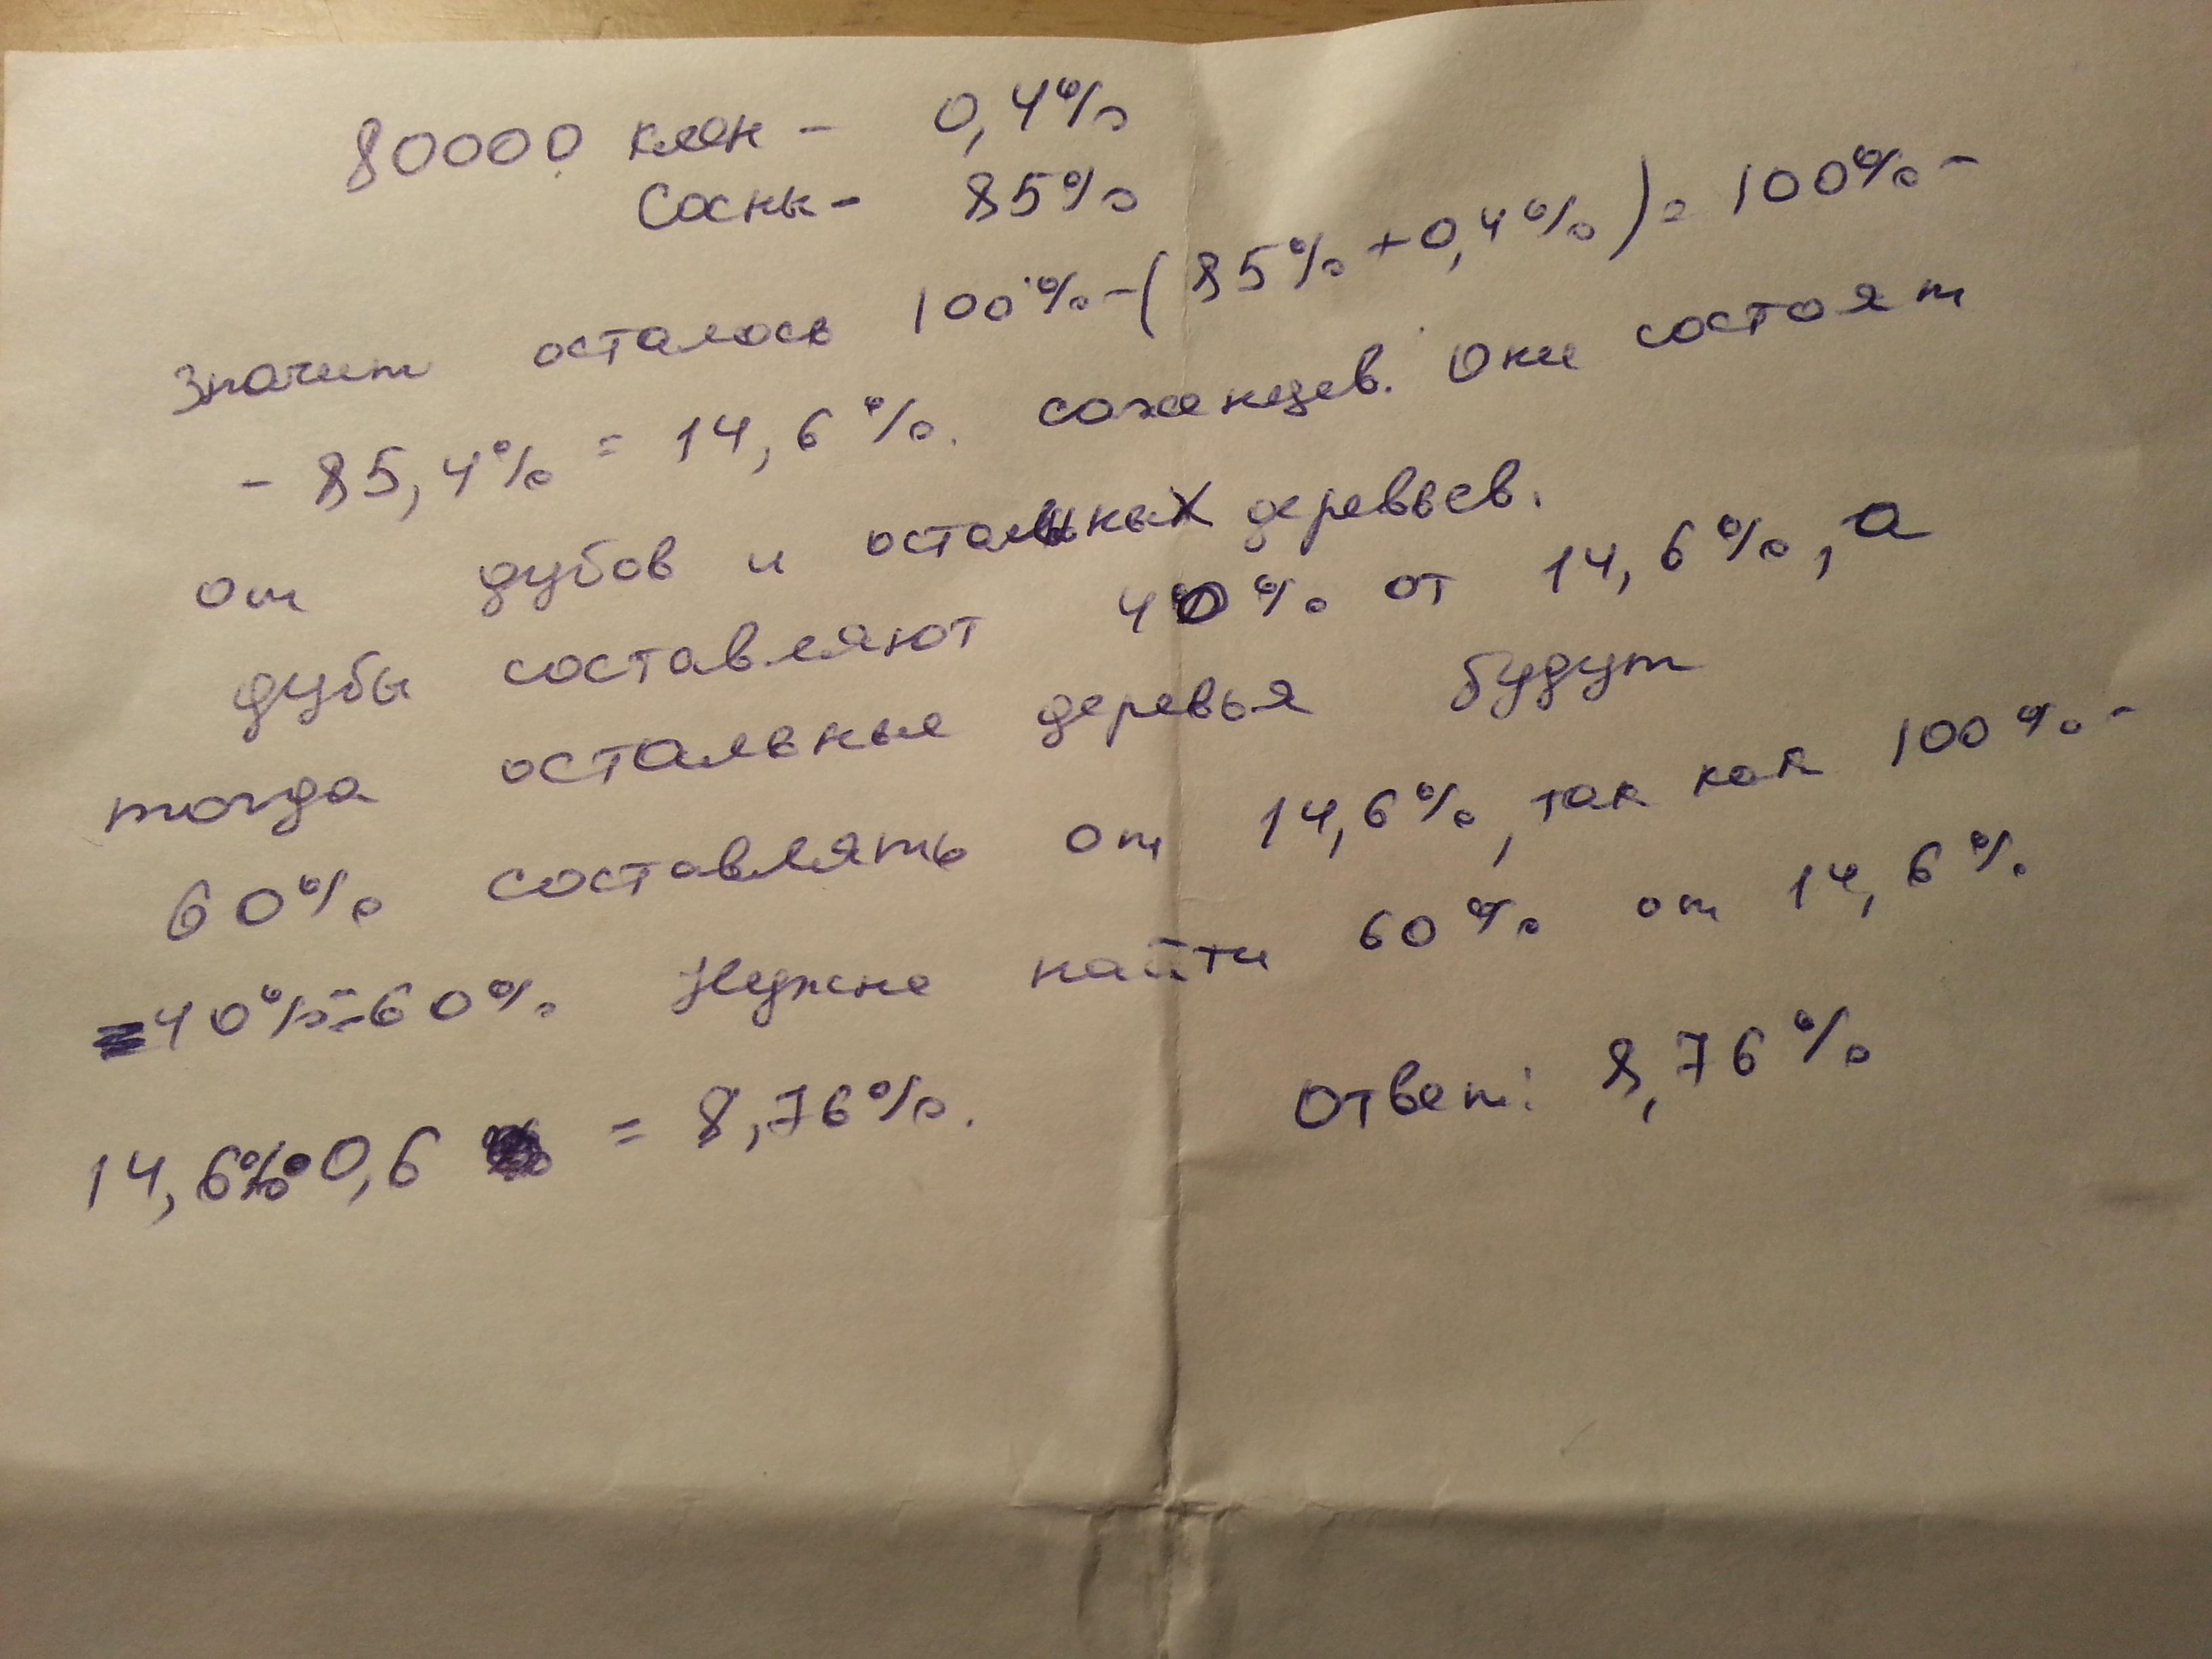 80000 клён - 0,4%
Сосны - 85%
Значит осталось 100% - (85% + 0,4%) = 100% -
- 85,4% = 14,6%. саженцев. Они состоят
от дубов и остальных деревьев.
дубы составляют 40% от 14,6%, а
тогда остальные деревья будут
60% составлять от 14,6%, так как 100% -
- 40% = 60%. Нужно найти 60% от 14,6%.
14,6% • 0,6 = 8,76%. Ответ: 8,76%